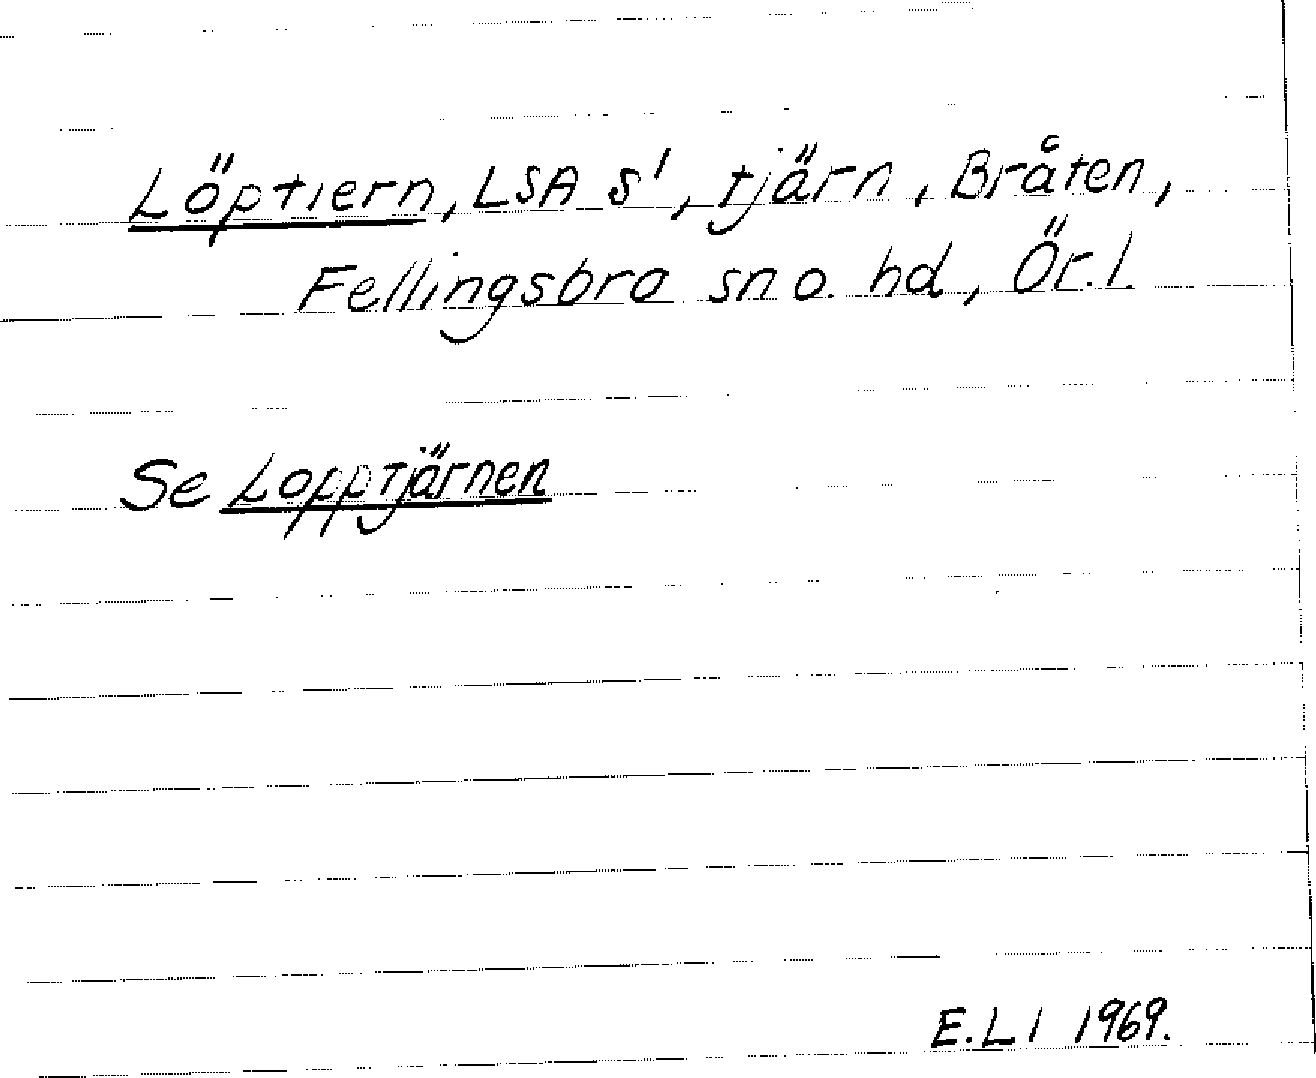 Löptiern, LSA S¹, tjärn, Bråten,
Fellingsbro sn o. hd, Ör. l.
Se Lopptjärnen
E. L I 1969.